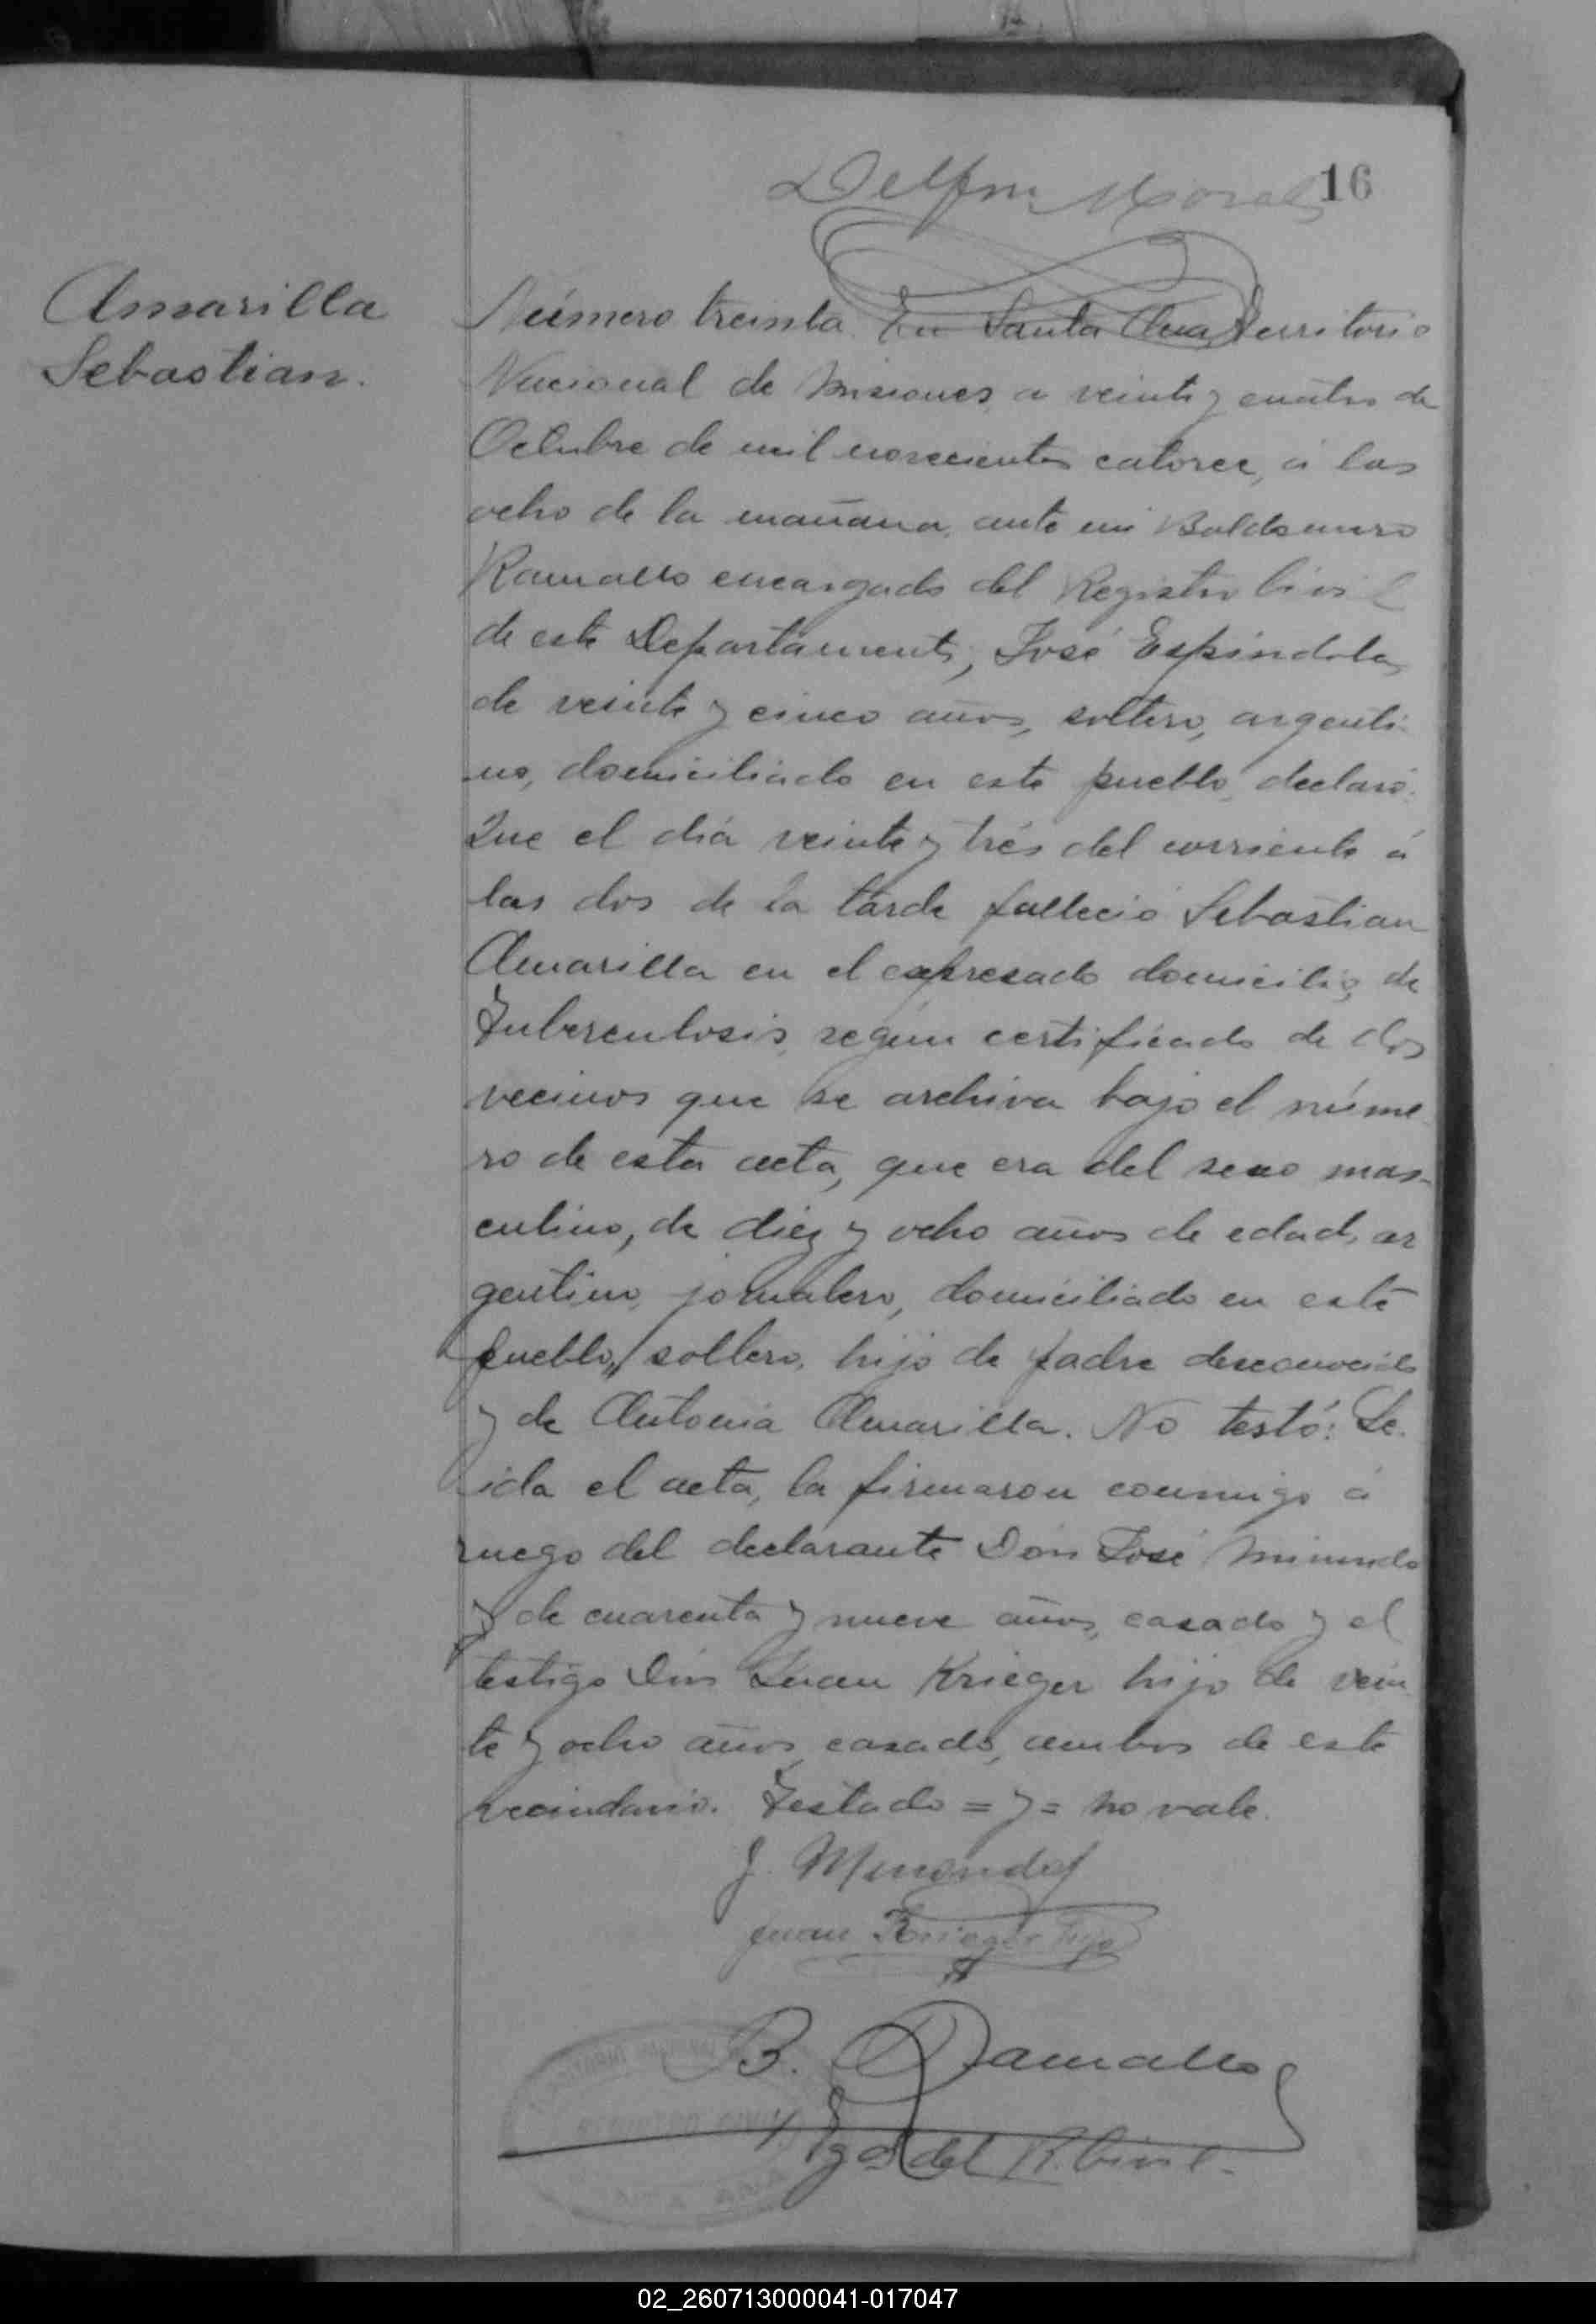 16
Delfin Morales
Amarilla
Sebastian.
Número treinta. En Santa Ana, Territorio
Nacional de Misiones, a veinte y cuatro de
Octubre de mil novecientos catorce, á las
ocho de la mañana, ante mi Baldomero
Ramallo encargado del Registro Civil
de este Departamento, José Espindola,
de veinte y cinco años, soltero, argenti-
no, domiciliado en este pueblo, declaró:
Que el dia veinte y trés del corriente á
las dos de la tarde falleció Sebastian
Amarilla en el expresado domicilio, de
Tuberculosis, segun certificado de dos
vecinos que se archiva bajo el núme
ro de esta acta, que era del sexo mas-
culino, de diez y ocho años de edad, ar
gentino, jornalero, domiciliado en este
pueblo, soltero, hijo de padre desconocido
y de Antonia Amarilla. No testó: Le-
ida el acta, la firmaron conmigo á
ruego del declarante Don José
y de cuarenta y nueve años, casado y el
testigo Don Juan Krieger hijo de vein
te y ocho años, casado, ambos de este
vecindario. Testado = y = no vale.
J.
Juan Krieger hijo
B. Ramallo
del R. Civil.
02_260713000041-017047